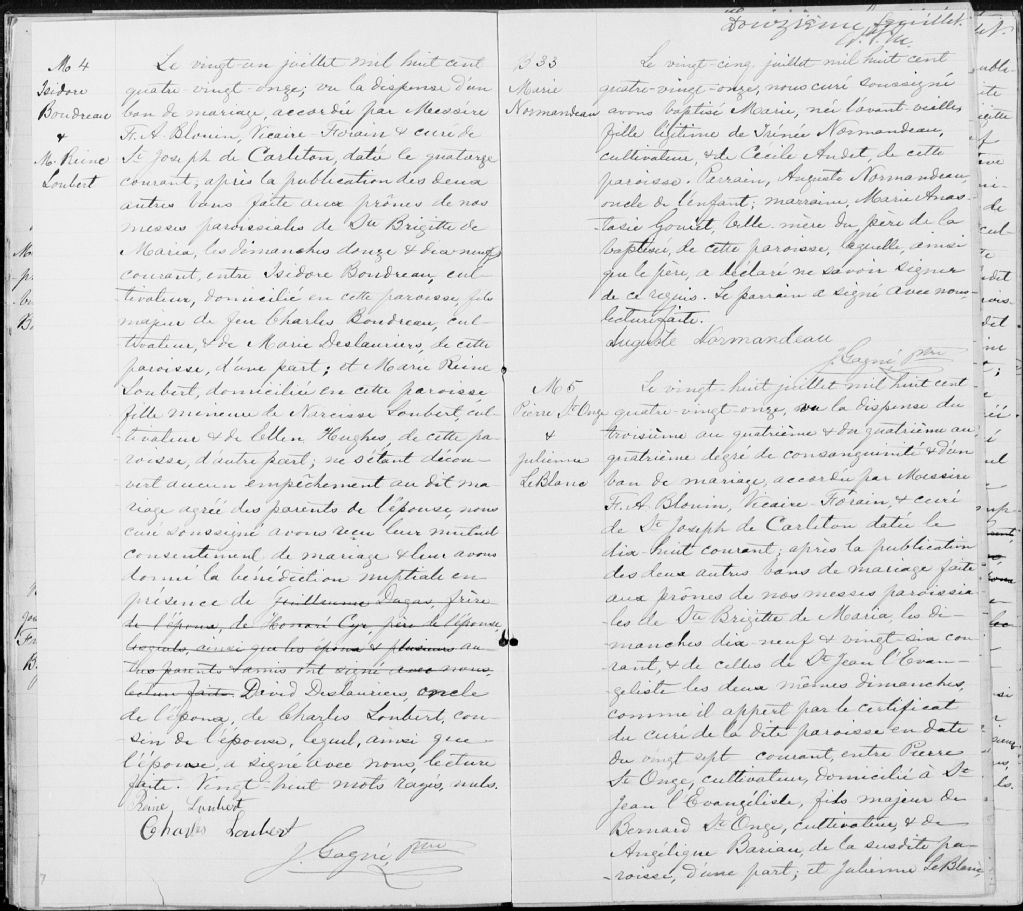 M 4
Isidore
Boudreau
&
M. Reine
Loubert
Le vingt-un juillet mil huit cent
quatre-vingt-onze, vu la dispense d'un
ban de mariage, accordée par Messire
F. A. Blouin, Vicaire-Forain & curé de
St Joseph de Carleton, datée le quatorze
courant, après la publication des deux
autres bans faite aux prônes de nos
messes paroissiales de Ste Brigitte de
Maria, les dimanches douze & dix neuf
courant, entre Isidore Boudreau, cul-
tivateur, domicilié en cette paroisse, fils
majeur de feu Charles Boudreau, cul-
tivateur, & de Marie Deslauriers, de cette
paroisse, d'une part; et Marie Reine
Loubert, domiciliée en cette paroisse
fille mineure de Narcisse Loubert, cul-
tivateur & de Ellen Hughes, de cette pa-
roisse, d'autre part; ne s'étant décou-
vert aucun empêchement au dit ma-
riage agréé des parents de l'épouse, nous
curé soussigné avons reçu leur mutuel
consentement de mariage & leur avons
donné la bénédiction nuptiale en
présence de Guillaume Dugas, frère
de l'époux, de Honoré Cyr, père de l'épouse
lesquels, ainsi que les époux & plusieurs au-
tres parents & amis ont signé avec nous,
lecture faite. David Deslauriers, oncle
de l'époux, de Charles Loubert, cou-
sin de l'épouse, lequel, ainsi que
l'épouse, a signé avec nous, lecture
faite. Vingt-huit mots rayés, nuls.
Reine Loubert
Charles Loubert
J. Gagné, ptre
Douzième feuillet.
B 33
Marie
Normandeau
Le vingt-cinq juillet mil huit cent
quatre-vingt-onze, nous curé soussigné
avons baptisé Marie, née l'avant veille
fille légitime de Irénée Normandeau,
cultivateur, & de Cécile Audet, de cette
paroisse. Parrain, Auguste Normandeau,
oncle de l'enfant; marraine, Marie Anas-
tasie belle mère du père de la
baptisée, de cette paroisse, laquelle, ainsi
que le père, a déclaré ne savoir signer
de ce requis. Le parrain a signé avec nous,
lecture faite.
Auguste Normandeau
J. Gagné ptre
M 5
Pierre St Onge
&
Julienne
LeBlanc
Le vingt-huit juillet mil huit cent
quatre-vingt-onze, vu la dispense du
troisième au quatrième & du quatrième au
quatrième degré de consanguinité & d'un
ban de mariage, accordu par Messire
F. A. Blouin, Vicaire Forain, & curé
de St Joseph de Carleton datée le
dix-huit courant; après la publication
des deux autres bans de mariage faite
aux prônes de nos messes paroissia-
les de Ste Brigitte de Maria, les di-
manches dix-neuf & vingt-six cou-
rant, & de celles de St Jean l'Évan-
géliste les deux mêmes dimanches,
comme il appert par le certificat
du curé de la dite paroisse en date
du vingt sept courant, entre Pierre
St Onge, cultivateur, domicilié à St
Jean l'Evangéliste, fils majeur de
Bernard St Onge, cultivateur, & de
Angélique Bariau, de la susdite pa-
roisse, d'une part; et Julienne LeBlanc,